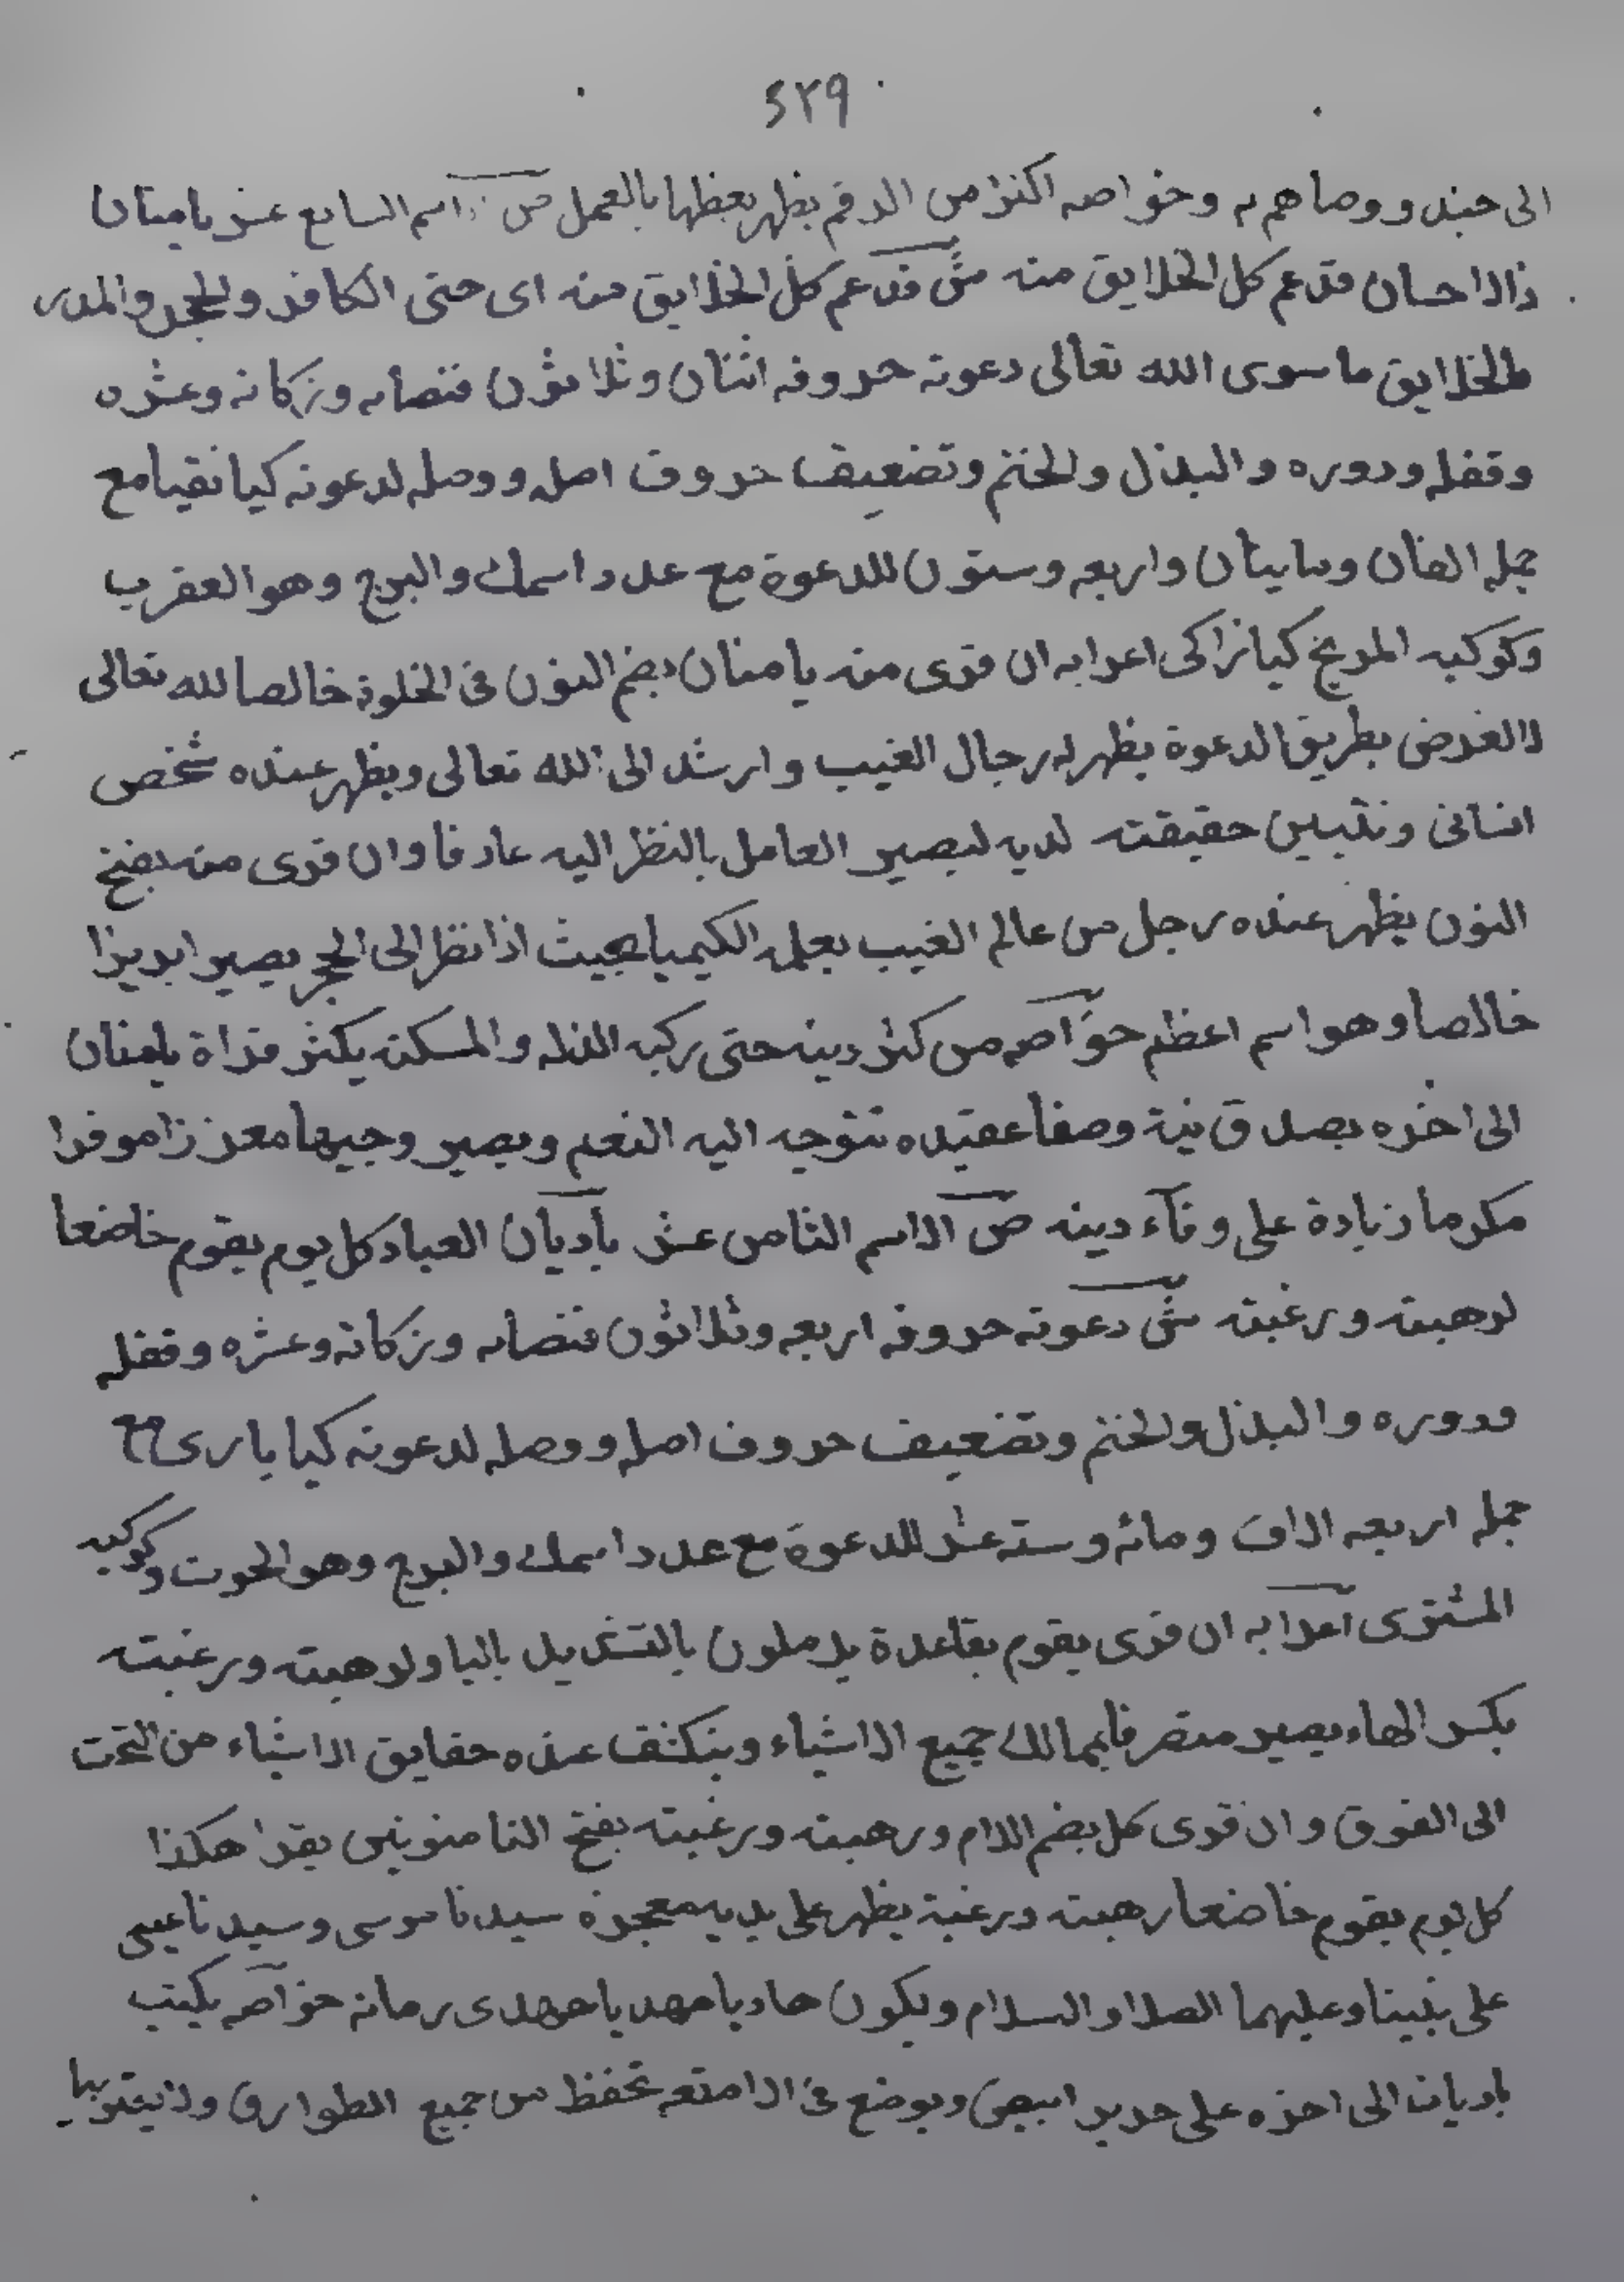 ٤٢٩
الى حبند ووصاهم به وخواصه اكثر من الرقم يظهر بعظها بالعمل ص اسم السابع عشر يا منان
ذالاحسان قد عم كل الخلايق منه ش قد عم كل الخلايق منه اى حتى الكافر والحجر والمدر
طالخلايق ما سوى الله تعالى دعوته حروفه اثنان وثلاثون فنصابه وزكاته وعشره
وقفله ودوره والبذل والختم وتضعيف حروف اصله ووصله لدعوته كيا نقيا مع
جمله الفان ومايتان واربعه وستون للدعوة مع عدد اسمك والبرج وهو العقرب
وكوكبه المريخ كيا زاكى اعرابه ان قرى منه يا منان بضم النون فى الخلوة خالصا لله تعالى
لا الغرض بطريق الدعوة يظهر له رجال الغيب وارشد الى الله تعالى ويظهر عنده شخص
انسانى وتتبين حقيقته لديه ليصير العامل بالنظر اليه عارفا وان قرى منه بفتح
النون يظهر عنده رجل من عالم الغيب بعلمه الكيميا بحيث اذا نظر الى الحجر يصير ابريزا
خالصا وهو اسم اعظم خواصه من كثر دينه حتى ركبه الذله والمسكنه يكثر قراة يا منان
الى اخره بصدق نية وصفا عقيده تتوجه اليه النعم ويصير وجيها معززا موفرا
مكرما زيادة على وفآء دينه ص الاسم الثامن عشر يا ديان العباد كل يوم يقوم خاضعا
لرهبته ورغبته ش دعوته حروفه اربعه وثلاثون فنصابه وزكاته وعشره وقفله
ودوره والبذل والختم وتضعيف حروف اصله ووصله لدعوته كيا بارى مع
جمله اربعه الاف ومائه وسته عشر للدعوة مع عدد اسمك والبرج وهو الحوت وكوكبه
المشترى اعرابه ان قرى يقوم بقاعدة يرملون بالتشديد باليا ولرهبته ورغبته
بكسر الهاء يصير متصرفا بممالك جميع الاشياء وينكشف عنده حقايق الاشياء من التحت
الى الفوق وان قرى كل بضم اللام ورهبته ورغبته بفتح التا منونين يقرا هكذا
كل يوم يقوم خاضعا رهبته ورغبة يظهر على يديه معجزة سيدنا موسى وسيدنا عيسى
على نبينا وعليهما الصلا والسلام ويكون هاديا مهديا مهدى زمانه خواصه يكتب
يا ديان الى اخره على حرير ابيض ويوضع فى الامتعه تحفظ من جميع الطوارق ولا يقربها